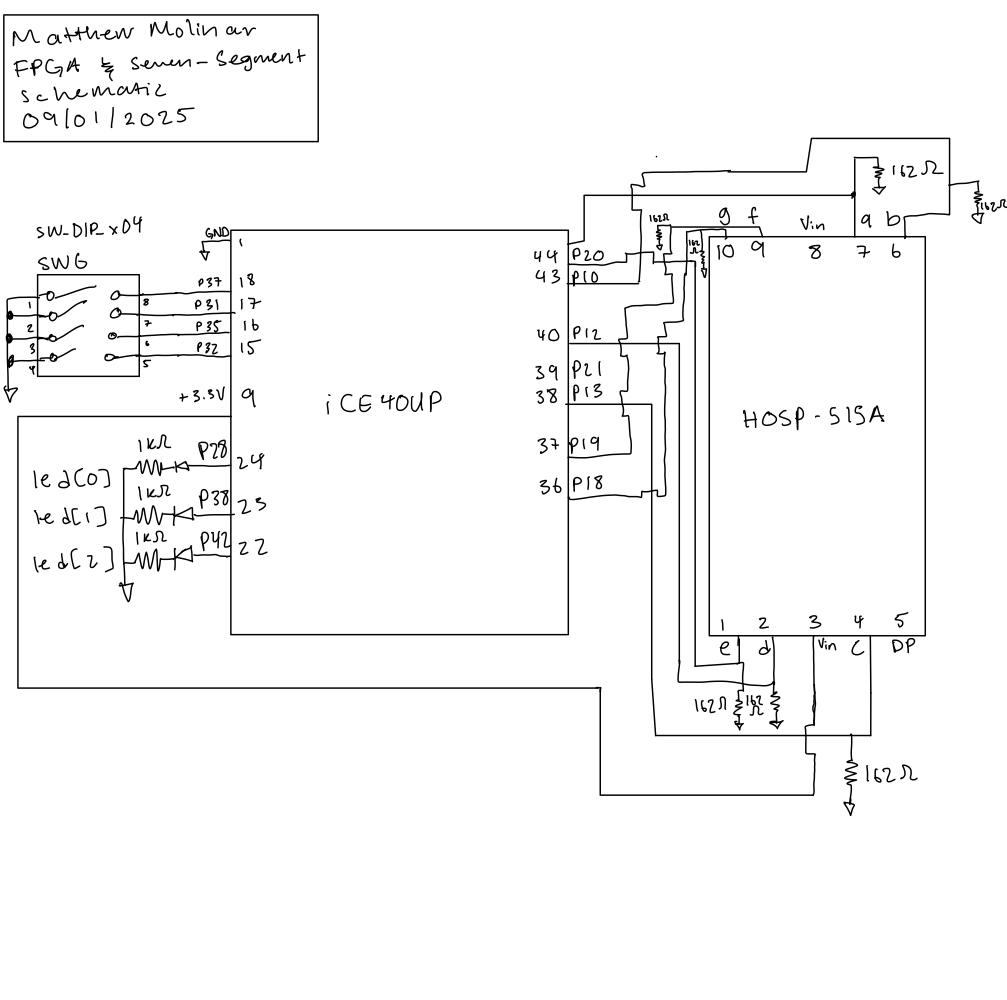 Matthew Molinar
FPGA & Seven-Segment
Schematic
09/01/2025
SW-DIP x04
SW6
1
2
3
4
8
7
6
5
GND
1
P37 18
P31 17
P35 16
P32 15
+3.3V 9
led[0] 1kΩ P28 24
led[1] 1kΩ P38 23
led[2] 1kΩ P42 22
iCE40UP
44 P20
43 P10
40 P12
39 P21
38 P13
37 P19
36 P18
162Ω
162Ω
162Ω
162Ω
g f Vin a b
10 9 8 7 6
HDSP-515A
1 2 3 4 5
e d Vin c DP
162Ω 162Ω
162Ω